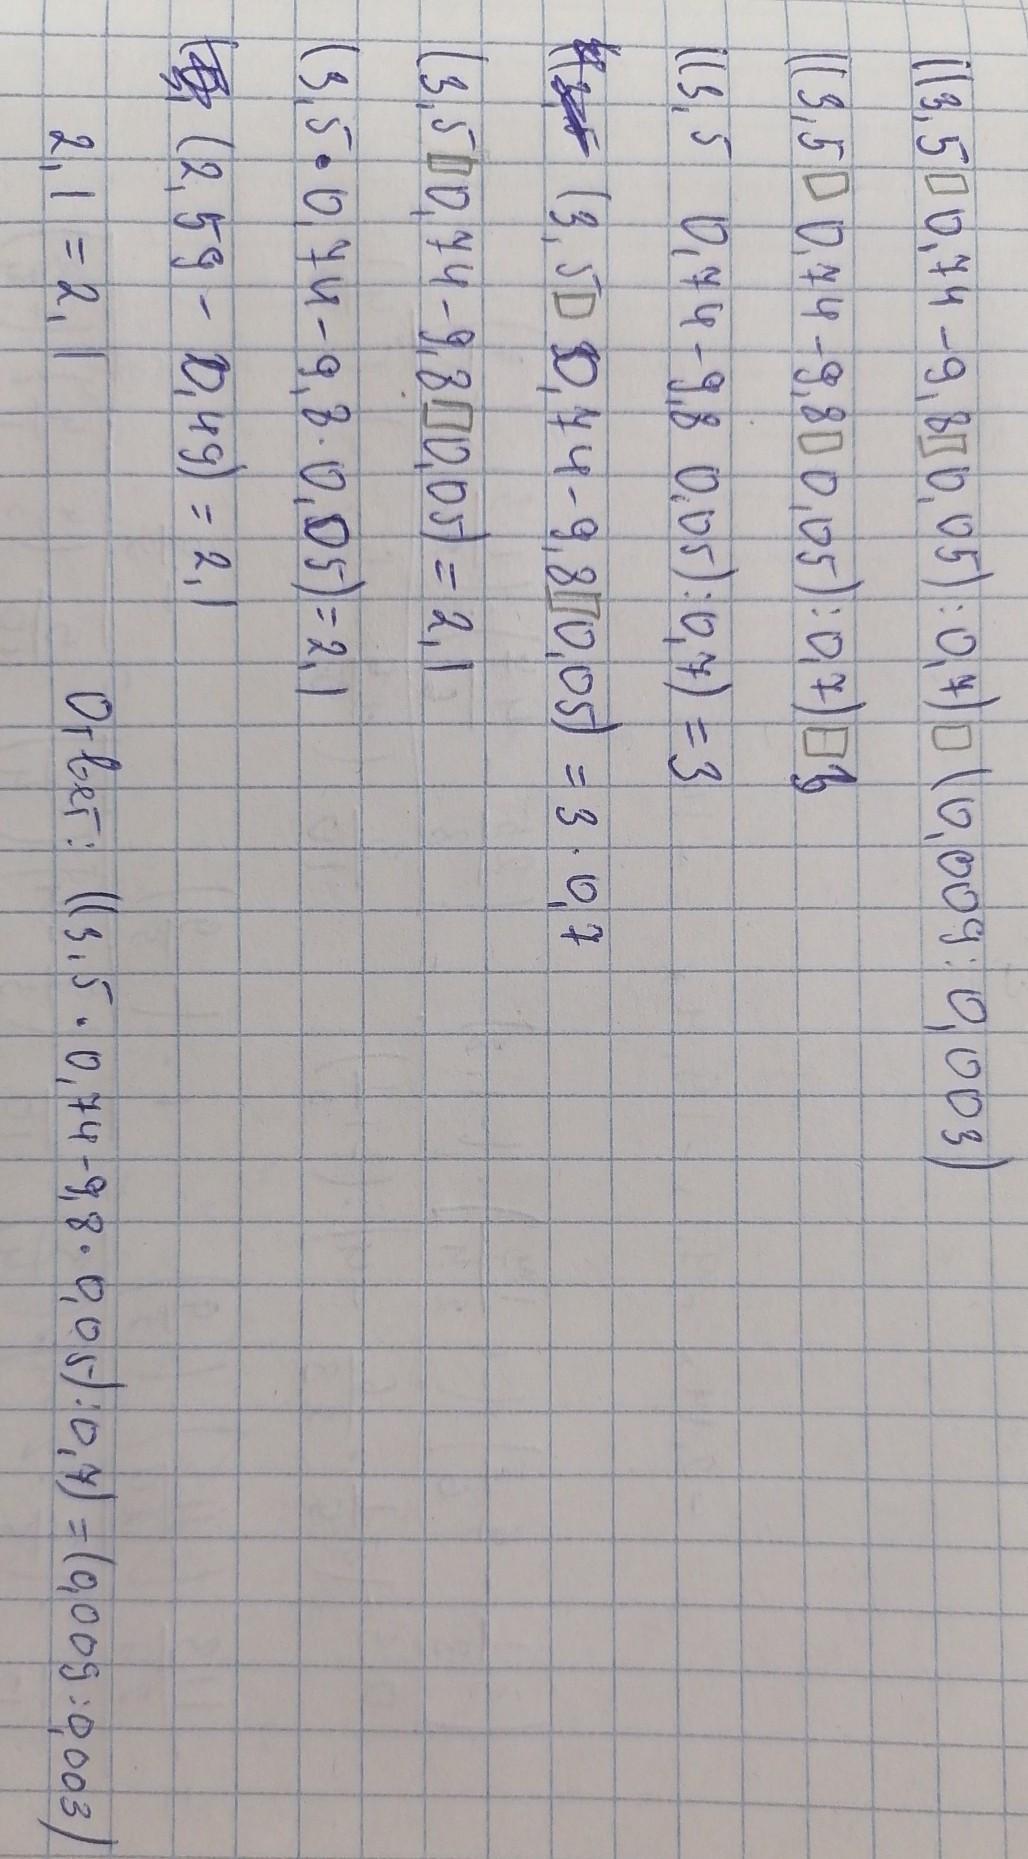 ((3,5□0,74-9,8□0,05):0,7)□(0,009:0,003)
((3,5□0,74-9,8□0,05):0,7)□3
((3,5 0,74-9,8 0,05):0,7)=3
(3,5□0,74-9,8□0,05)=3·0,7
(3,5□0,74-9,8□0,05)=2,1
(3,5·0,74-9,8·0,05)=2,1
(2,59-0,49)=2,1
2,1=2,1
Ответ: ((3,5·0,74-9,8·0,05):0,7)=(0,009:0,003)